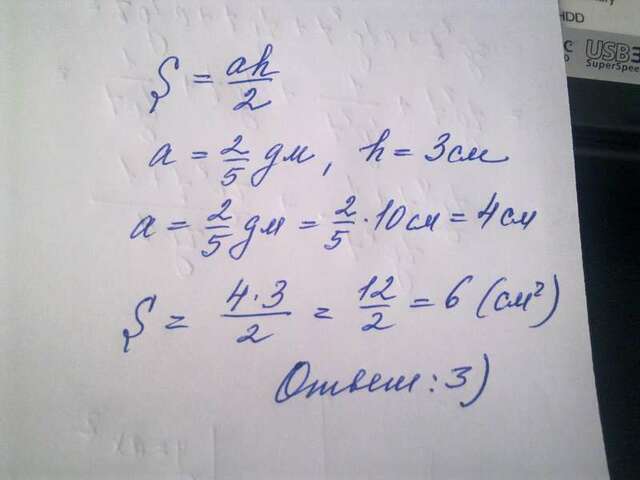 S = ah/2
a = 2/5 дм, h = 3см
a = 2/5 дм = 2/5 · 10см = 4см
S = 4·3/2 = 12/2 = 6 (см²)
Ответ: 3)
HDD
USB3
SuperSpee